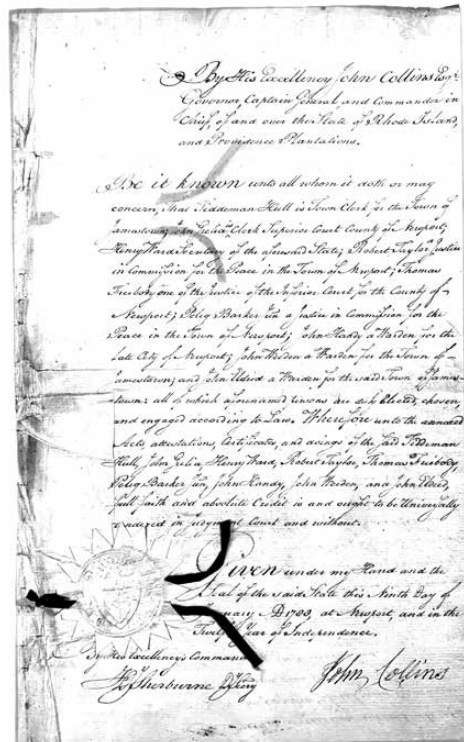 By His Excellency John Collins Esqr.
Governor, Captain General, and Commander in
Chief, of and over the State of Rhode Island,
and Providence Plantations.
Be it known unto all whom it doth or may
concern, that Tiddeman Hull is Town Clerk for the Town of
Jamestown; John Clerk Superior Court County of Newport;
Henry Ward Secretary of the State; Robert Taylor a Justice
in Commission for the Peace in the Town of Newport; Thomas
Freebody one of the Justice of the Inferior Court for the County of
Newport; Peleg Barker Jun a justice in Commission for the
Peace in the Town of Newport; John Handy a Warden for the
late City of Newport; John Weeden a Warden for the Town of
Jamestown; and John Eldred a Warden for the said Town of James-
town: all of which Persons are duly Elected, chosen,
and engaged according to Law. Wherefore unto the annexed
Acts, attestations, Certificates, and doings of the said Tiddeman
Hull, John Henry Ward, Robert Taylor, Thomas Freebody,
Peleg Barker Jun, John Handy, John Weeden, and John Eldred,
full faith and absolute Credit is and ought to be Universally
rendered in judgment Court and without.
Given under my Hand and the
Seal of the said State this Ninth Day of
AD at Newport, and in the
Year of Independence.
By His Excellency's Command
Sherburne
John Collins